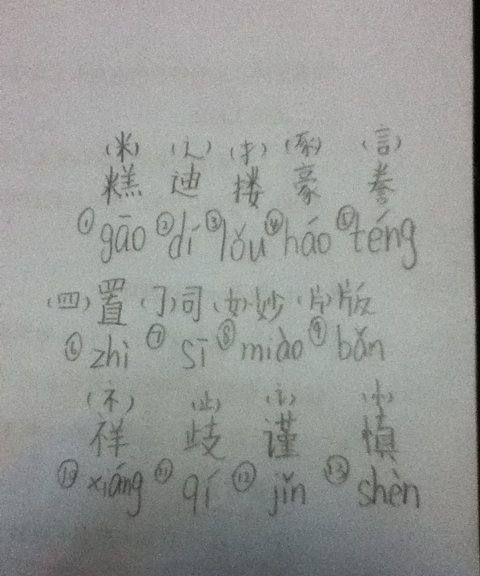 (米) (辶) (扌) (豕) (言)
糕 迪 搂 豪 誊
①gāo ②dí ③lǒu ④háo ⑤téng
(四)置 (㇆)司 (女)妙 (片)版
⑥zhì ⑦sī ⑧miào ⑨bǎn
(礻) (止) (讠) (忄)
祥 歧 谨 慎
⑩xiáng ⑪qí ⑫jǐn ⑬shèn